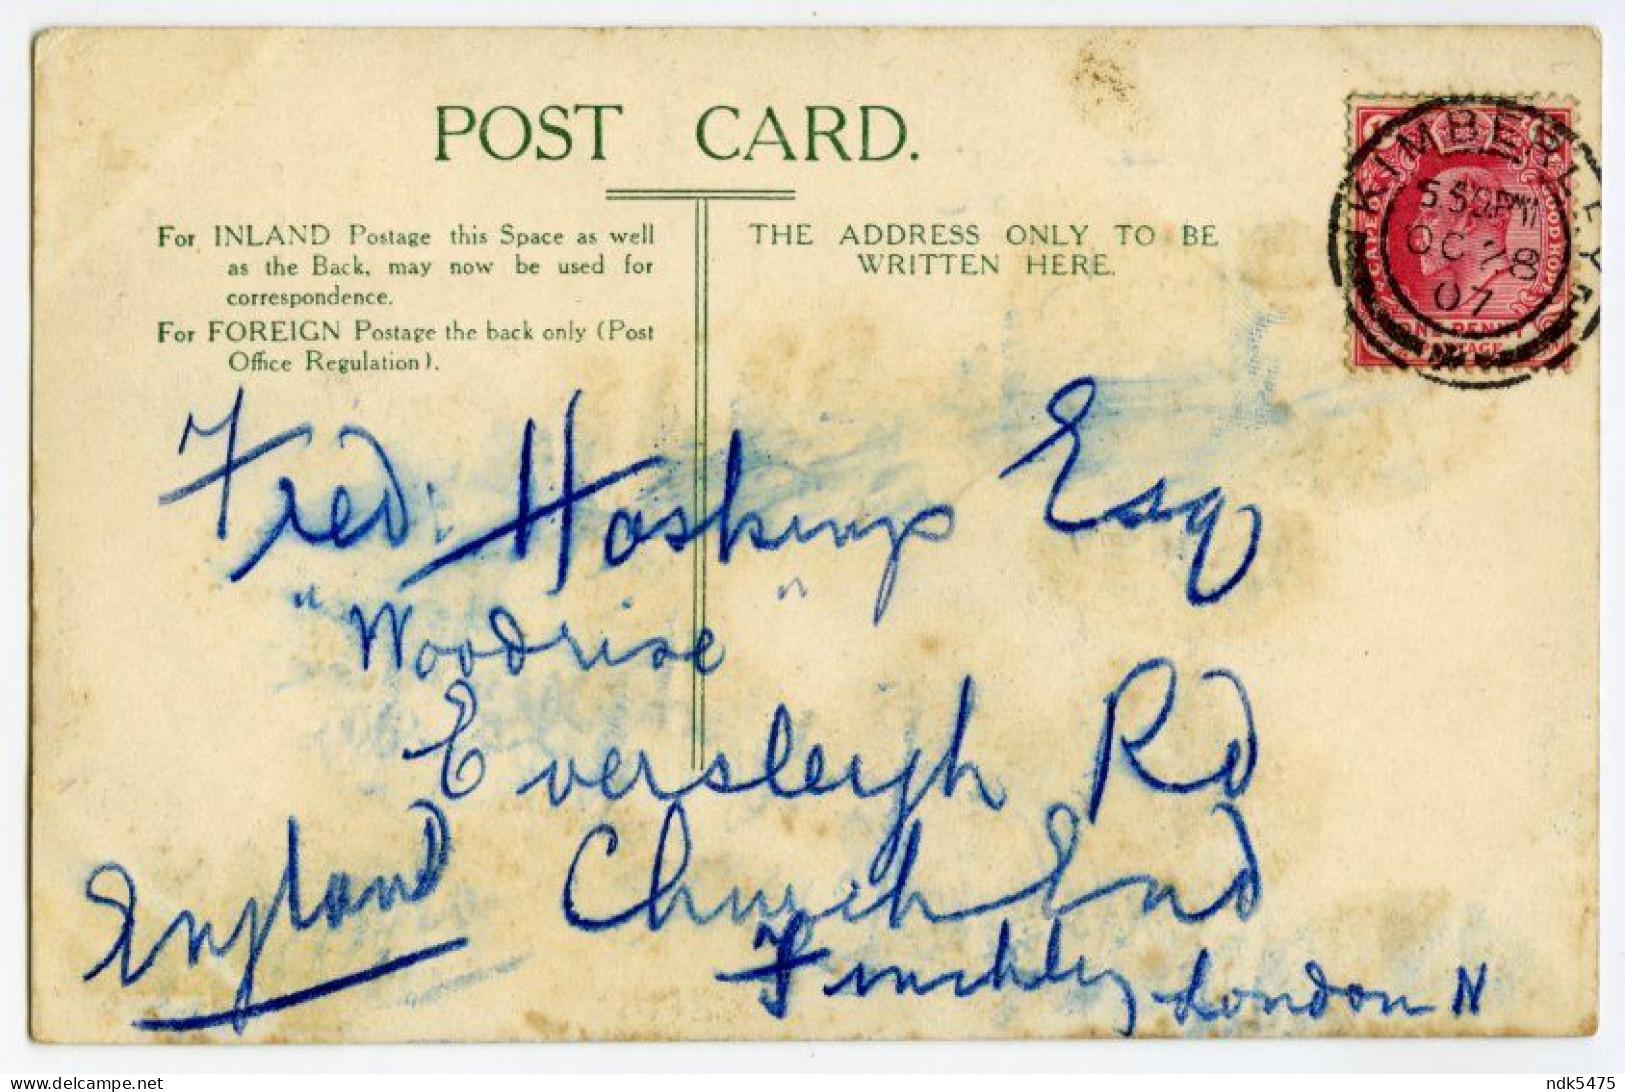 POST CARD.
For INLAND Postage this Space as well
as the Back, may now be used for
correspondence.
For FOREIGN Postage the back only (Post
Office Regulation).
THE ADDRESS ONLY TO BE
WRITTEN HERE.
KIMBERLEY
5 50 PM
OC 28
07
ONE PENNY
Fred. Hoskings Esq
"Woodrise"
Eversleigh Rd
Church End
Finchley London N
England
delcampe.net
ndk5475